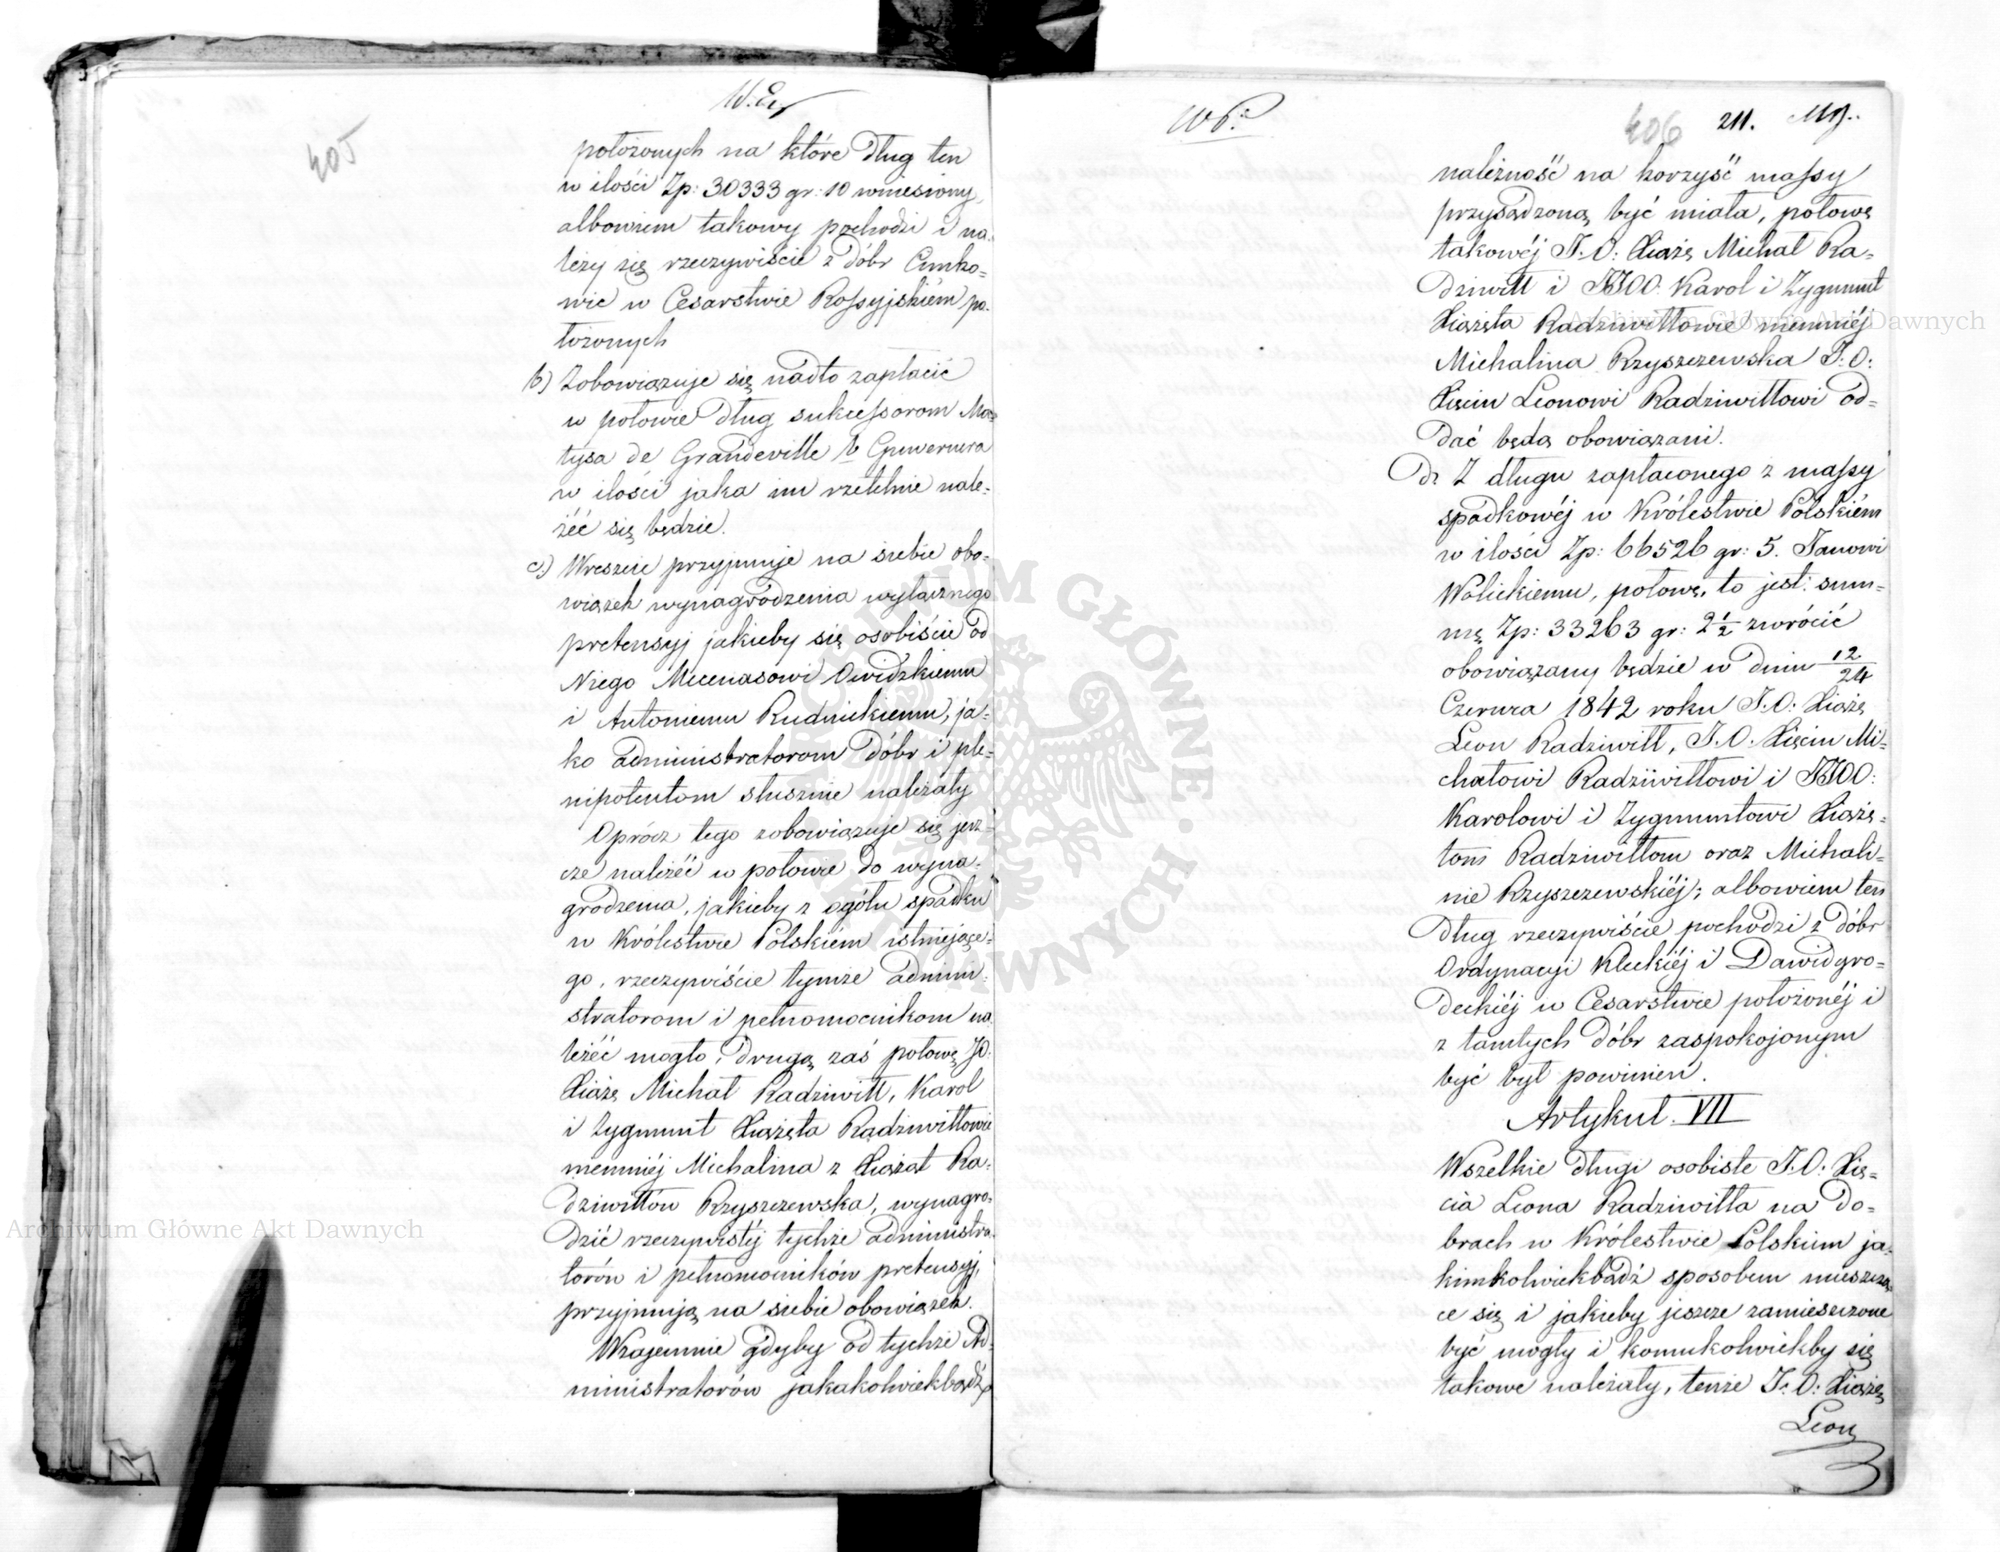 405
położonych na które Dług ten
w ilości Zp: 30333 gr: 10 wniesiony,
albowiem takowy pochodzi i na-
leży się rzeczywiście z Dóbr Cimko-
wic w Cesarstwie Rossyjskiém po-
łożonych
b) Zobowiązuje się nadto zapłacić
w połowie Dług sukcessorom Ma-
tysa de Grandeville b Guwernera
w ilości jaka im rzetelnie nale-
żéć się będzie.
c) Wreszcie przyjmuje na siebie obo-
wiązek wynagrodzenia wyłącznego
pretensyj jakieby się osobiście od
Niego Mecenasowi Owidzkiemu
i Antoniemu Rudnickiemu, ja-
ko administratorom Dóbr i ple-
nipotentom słusznie należały
Oprócz tego zobowiązuje się jesz-
cze należéć w połowie do wyna-
grodzenia, jakieby z ogółu spadku
w Królestwie Polskiém istniejące-
go, rzeczywiście tymże admini-
stratorom i pełnomocnikom na
leżéć mogło, Drugą zaś połowę JO.
Xiąże Michał Radziwiłł, Karol
i Zygmunt Xiążęta Radziwiłłowie
niemniéj Michalina z Xiążąt Ra-
dziwiłłów Rzyszczewska, wynagro-
dzić rzeczywistéj tychże administra-
torów i pełnomocników pretensyj,
przyjmują na siebie obowiązek.
Wzajemnie gdyby od tychże Ad-
ministratorów jakakolwiekbądź
406 211.
należność na korzyść massy
przysądzoną być miała, połowę
takowéj J.O: Xiąże Michał Ra-
dziwiłł i JJOO. Karol i Zygmunt
Xiążęta Radziwiłłowie niemniéj
Michalina Rzyszczewska J:O:
Xięciu Leonowi Radziwiłłowi od-
dać będą obowiązani.
D: Z długu zapłaconego z massy
spadkowéj w Królestwie Polskiém
w ilości Zp: 66526 gr: 5. Janowi
Wolickiemu, połowę, to jest: sum-
mę Zp: 33263 gr: 2 1/2 zwrócić
obowiązany będzie w Dniu 12/24
Czerwca 1842 roku J.O. Xiąże
Leon Radziwiłł, J.O. Xięciu Mi-
chałowi Radziwiłłowi i JJOO:
Karolowi i Zygmuntowi Xiążę-
tom Radziwiłłom oraz Michali-
nie Rzyszczewskiéj; albowiem ten
Dług rzeczywiście pochodzi z dóbr
Ordynacyi Kleckiéj i Dawidgro-
deckiéj w Cesarstwie położonéj i
z tamtych Dóbr zaspokojonym
być był powinien.
Artykuł. VII
Wszelkie długi osobiste J.O. Xię-
cia Leona Radziwiłła na Do-
brach w Królestwie Polskiem ja-
kimkolwiekbądź sposobem mieszczą-
ce się i jakieby jeszcze zamieszczone
być mogły i komukolwiekby się
takowe należały, tenże J:O: Xiąże
Leon
Archiwum Główne Akt Dawnych
Archiwum Główne Akt Dawnych
ARCHIWUM GŁÓWNE AKT DAWNYCH